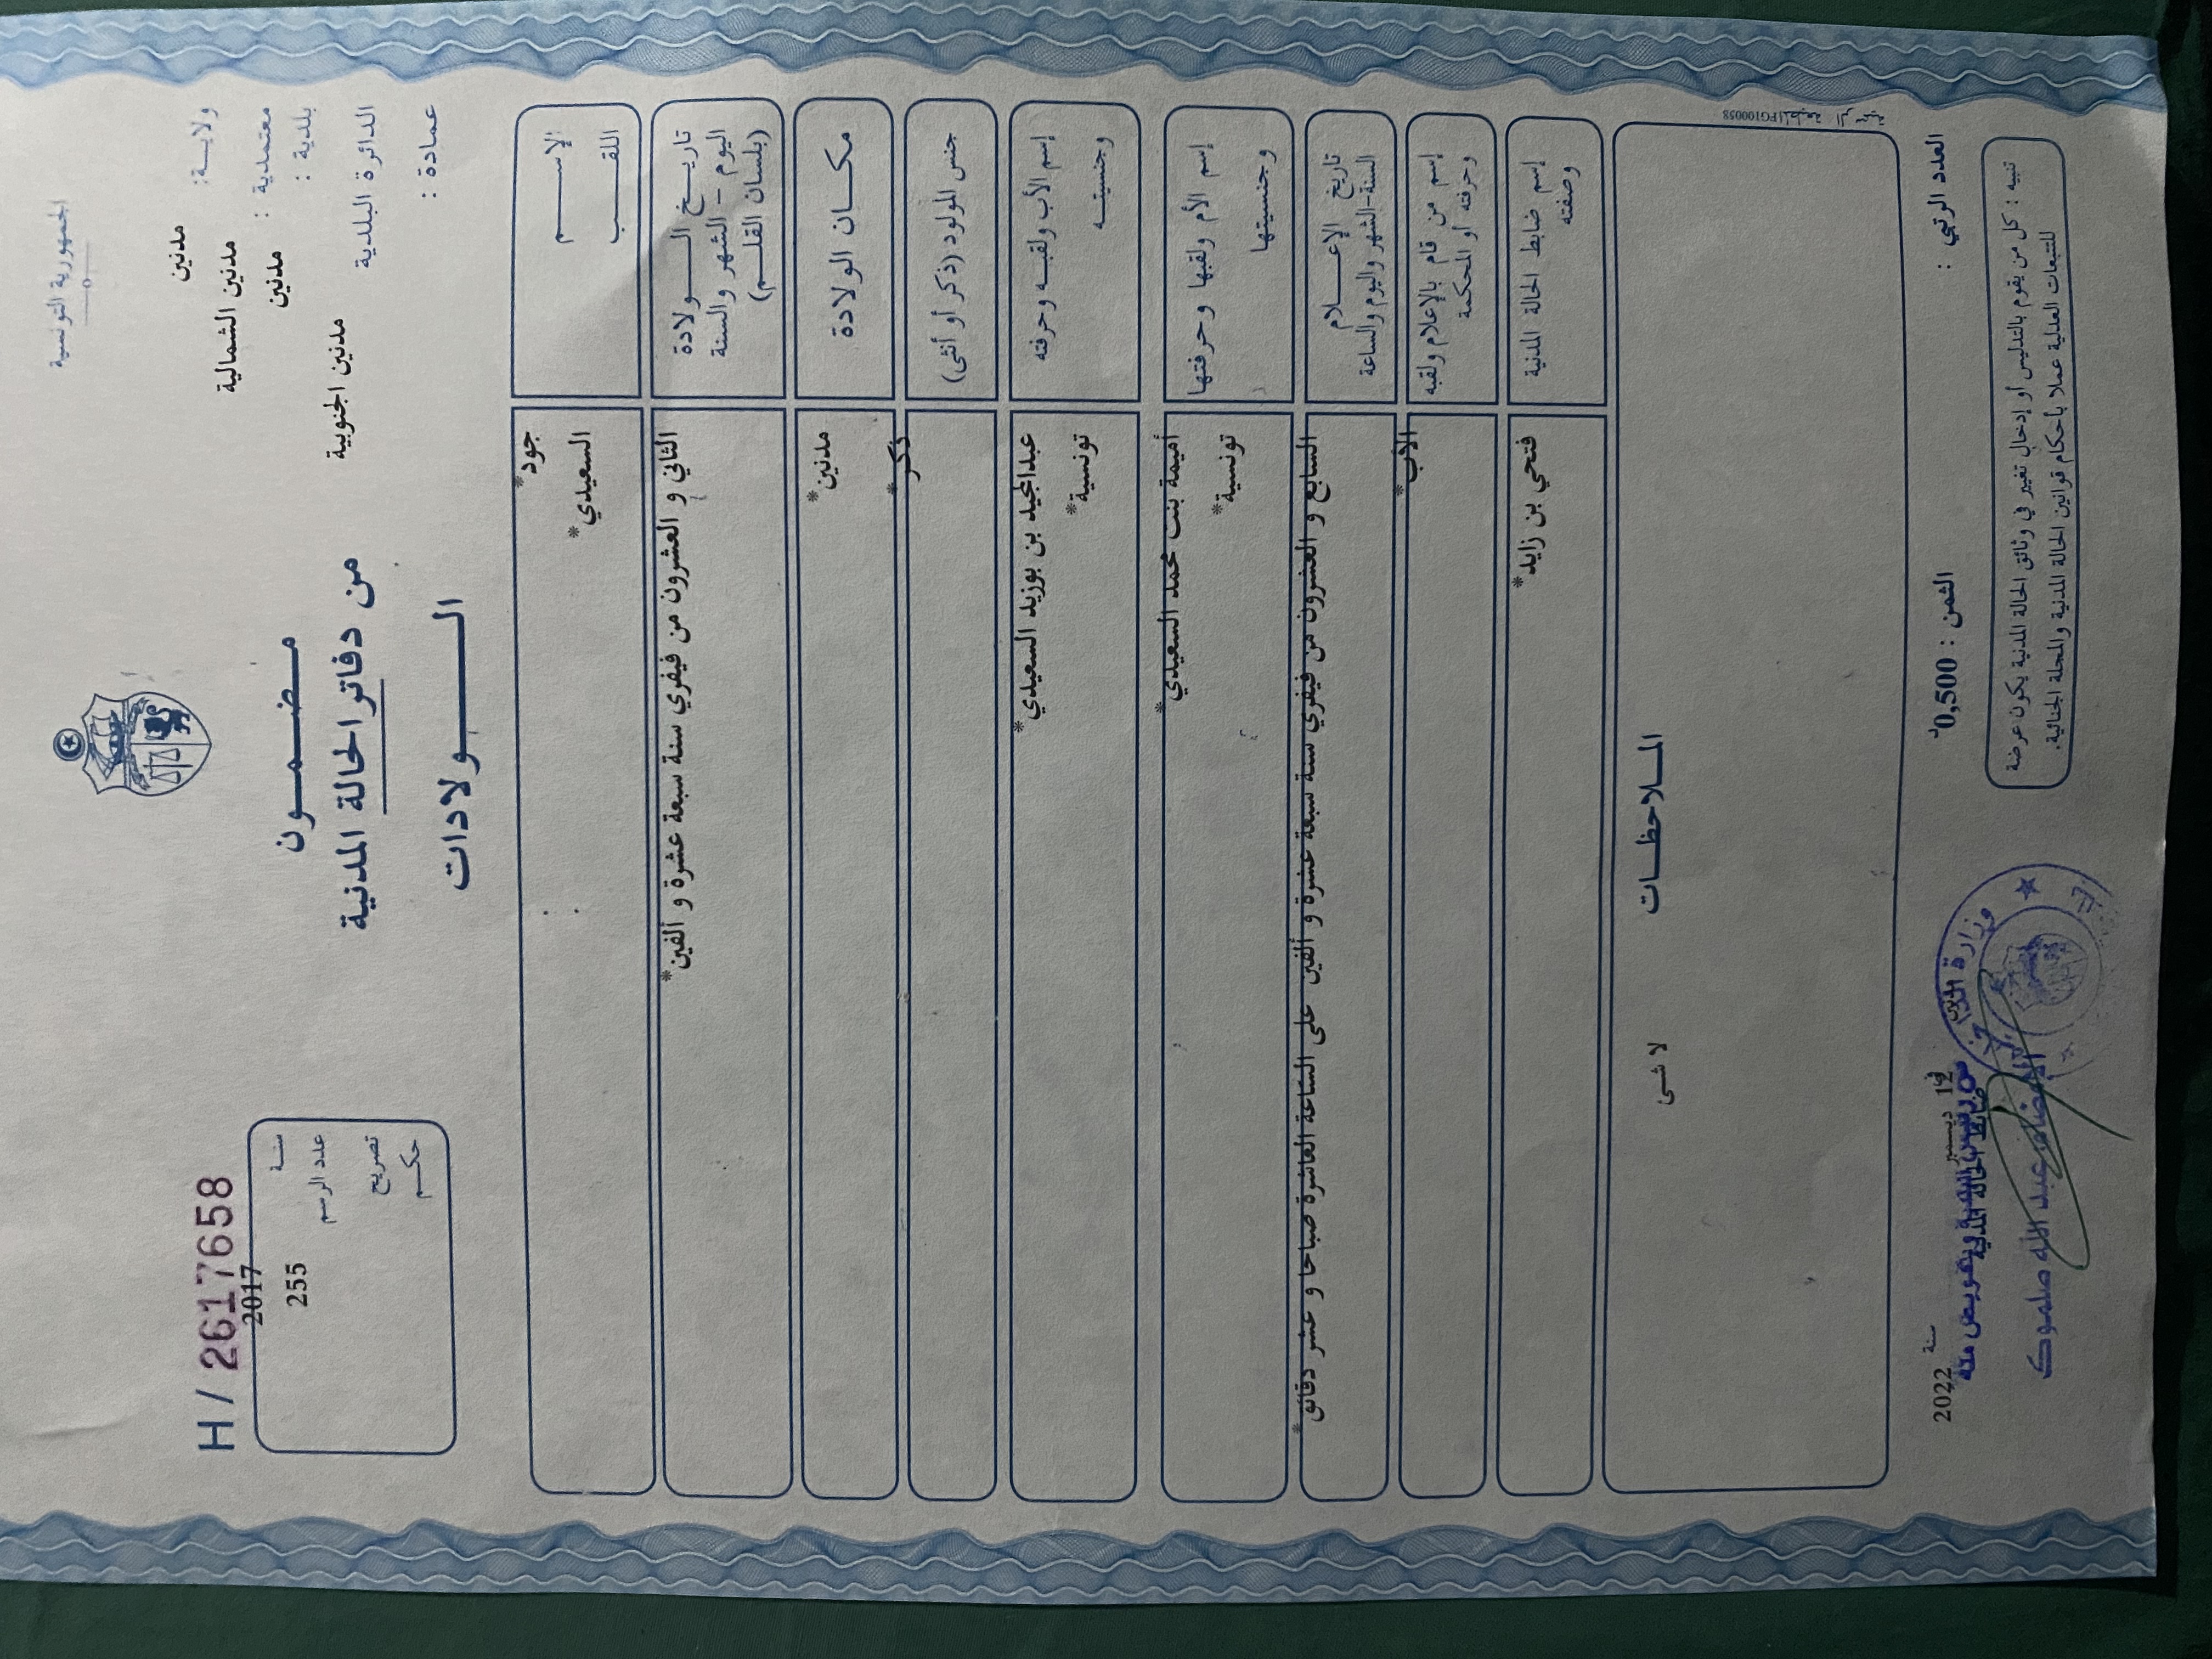 الجمهورية التونسية
ولايـــة: مدنين
معتمدية : مدنين الشمالية
بلدية : مدنين
الدائرة البلدية مدنين الجنوبية
عمادة :
مـــضـــمـــون
من دفاتر الحالة المدنية
الـــــولادات
H / 2617658
سنة 2017
عدد الرسم 255
تصريح
حكـــم
الإســـــم جود*
اللقـــب السعيدي*
تاريـــخ الـــولادة
اليوم - الشهر والسنة
(بلسان القلـــم)
الثاني و العشرون من فيفري سنة سبعة عشرة و ألفين*
مكـــان الولادة مدنين*
جنس المولود (ذكر أو أنثى) ذكر*
إسم الأب ولقبـــه وحرفته عبدالمجيد بن بوزيد السعيدي*
وجنسيتـــه تونسية*
إسم الأم ولقبها وحرفتها أميمة بنت محمد السعيدي*
وجنسيتها تونسية*
تاريخ الإعـــلام
السنة-الشهر واليوم والساعة
السابع و العشرون من فيفري سنة سبعة عشرة و ألفين على الساعة العاشرة صباحا و عشر دقائق*
إسم من قام بالإعلام ولقبه
وحرفته أو المحكمة
الأب*
إسم ضابط الحالة المدنية
وصفته
فتحي بن زايد*
المـــلاحظـــات
لا شى
العدد الرتبي :
الثمن : 0,500د
12 ديسمبر
سنة 2022
ضابط الحالة المدنية
الإمضاء: عبد الله صلموك
تنبيه : كل من يقوم بالتدليس أو إدخال تغيير في وثائق الحالة المدنية يكون عرضة
للتتبعات العدلية عملا بأحكام قوانين الحالة المدنية والمجلة الجنائية.